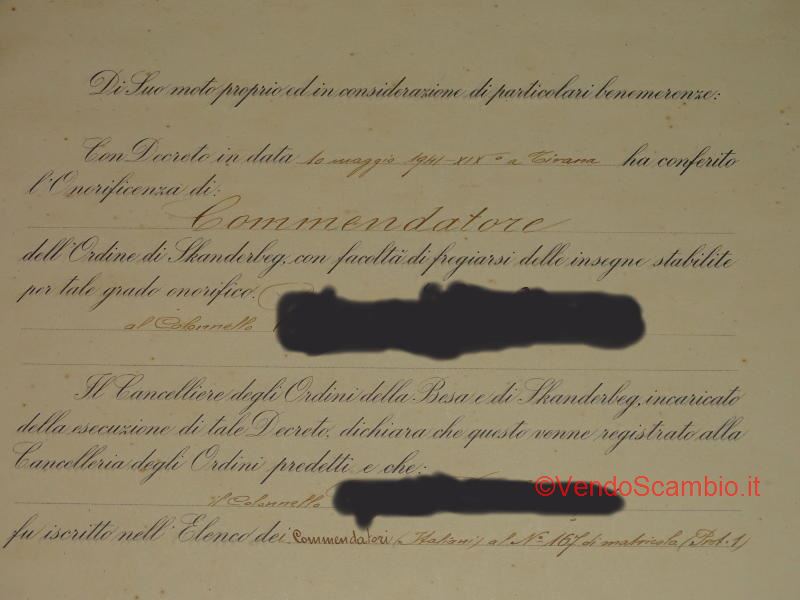 Di Suo moto proprio ed in considerazione di particolari benemerenze:
Con Decreto in data 10 maggio 1941-XIX° a Tirana ha conferito
l'Onorificenza di:
Commendatore
dell'Ordine di Skanderbeg, con facoltà di fregiarsi delle insegne stabilite
per tale grado onorifico.
al Colonnello
Il Cancelliere degli Ordini della Besa e di Skanderbeg, incaricato
della esecuzione di tale Decreto, dichiara che questo venne registrato alla
Cancelleria degli Ordini predetti e che:
il Colonnello
©VendoScambio.it
fu iscritto nell'Elenco dei Commendatori (Italiani) al N° 167 di matricola (Prot. 1)